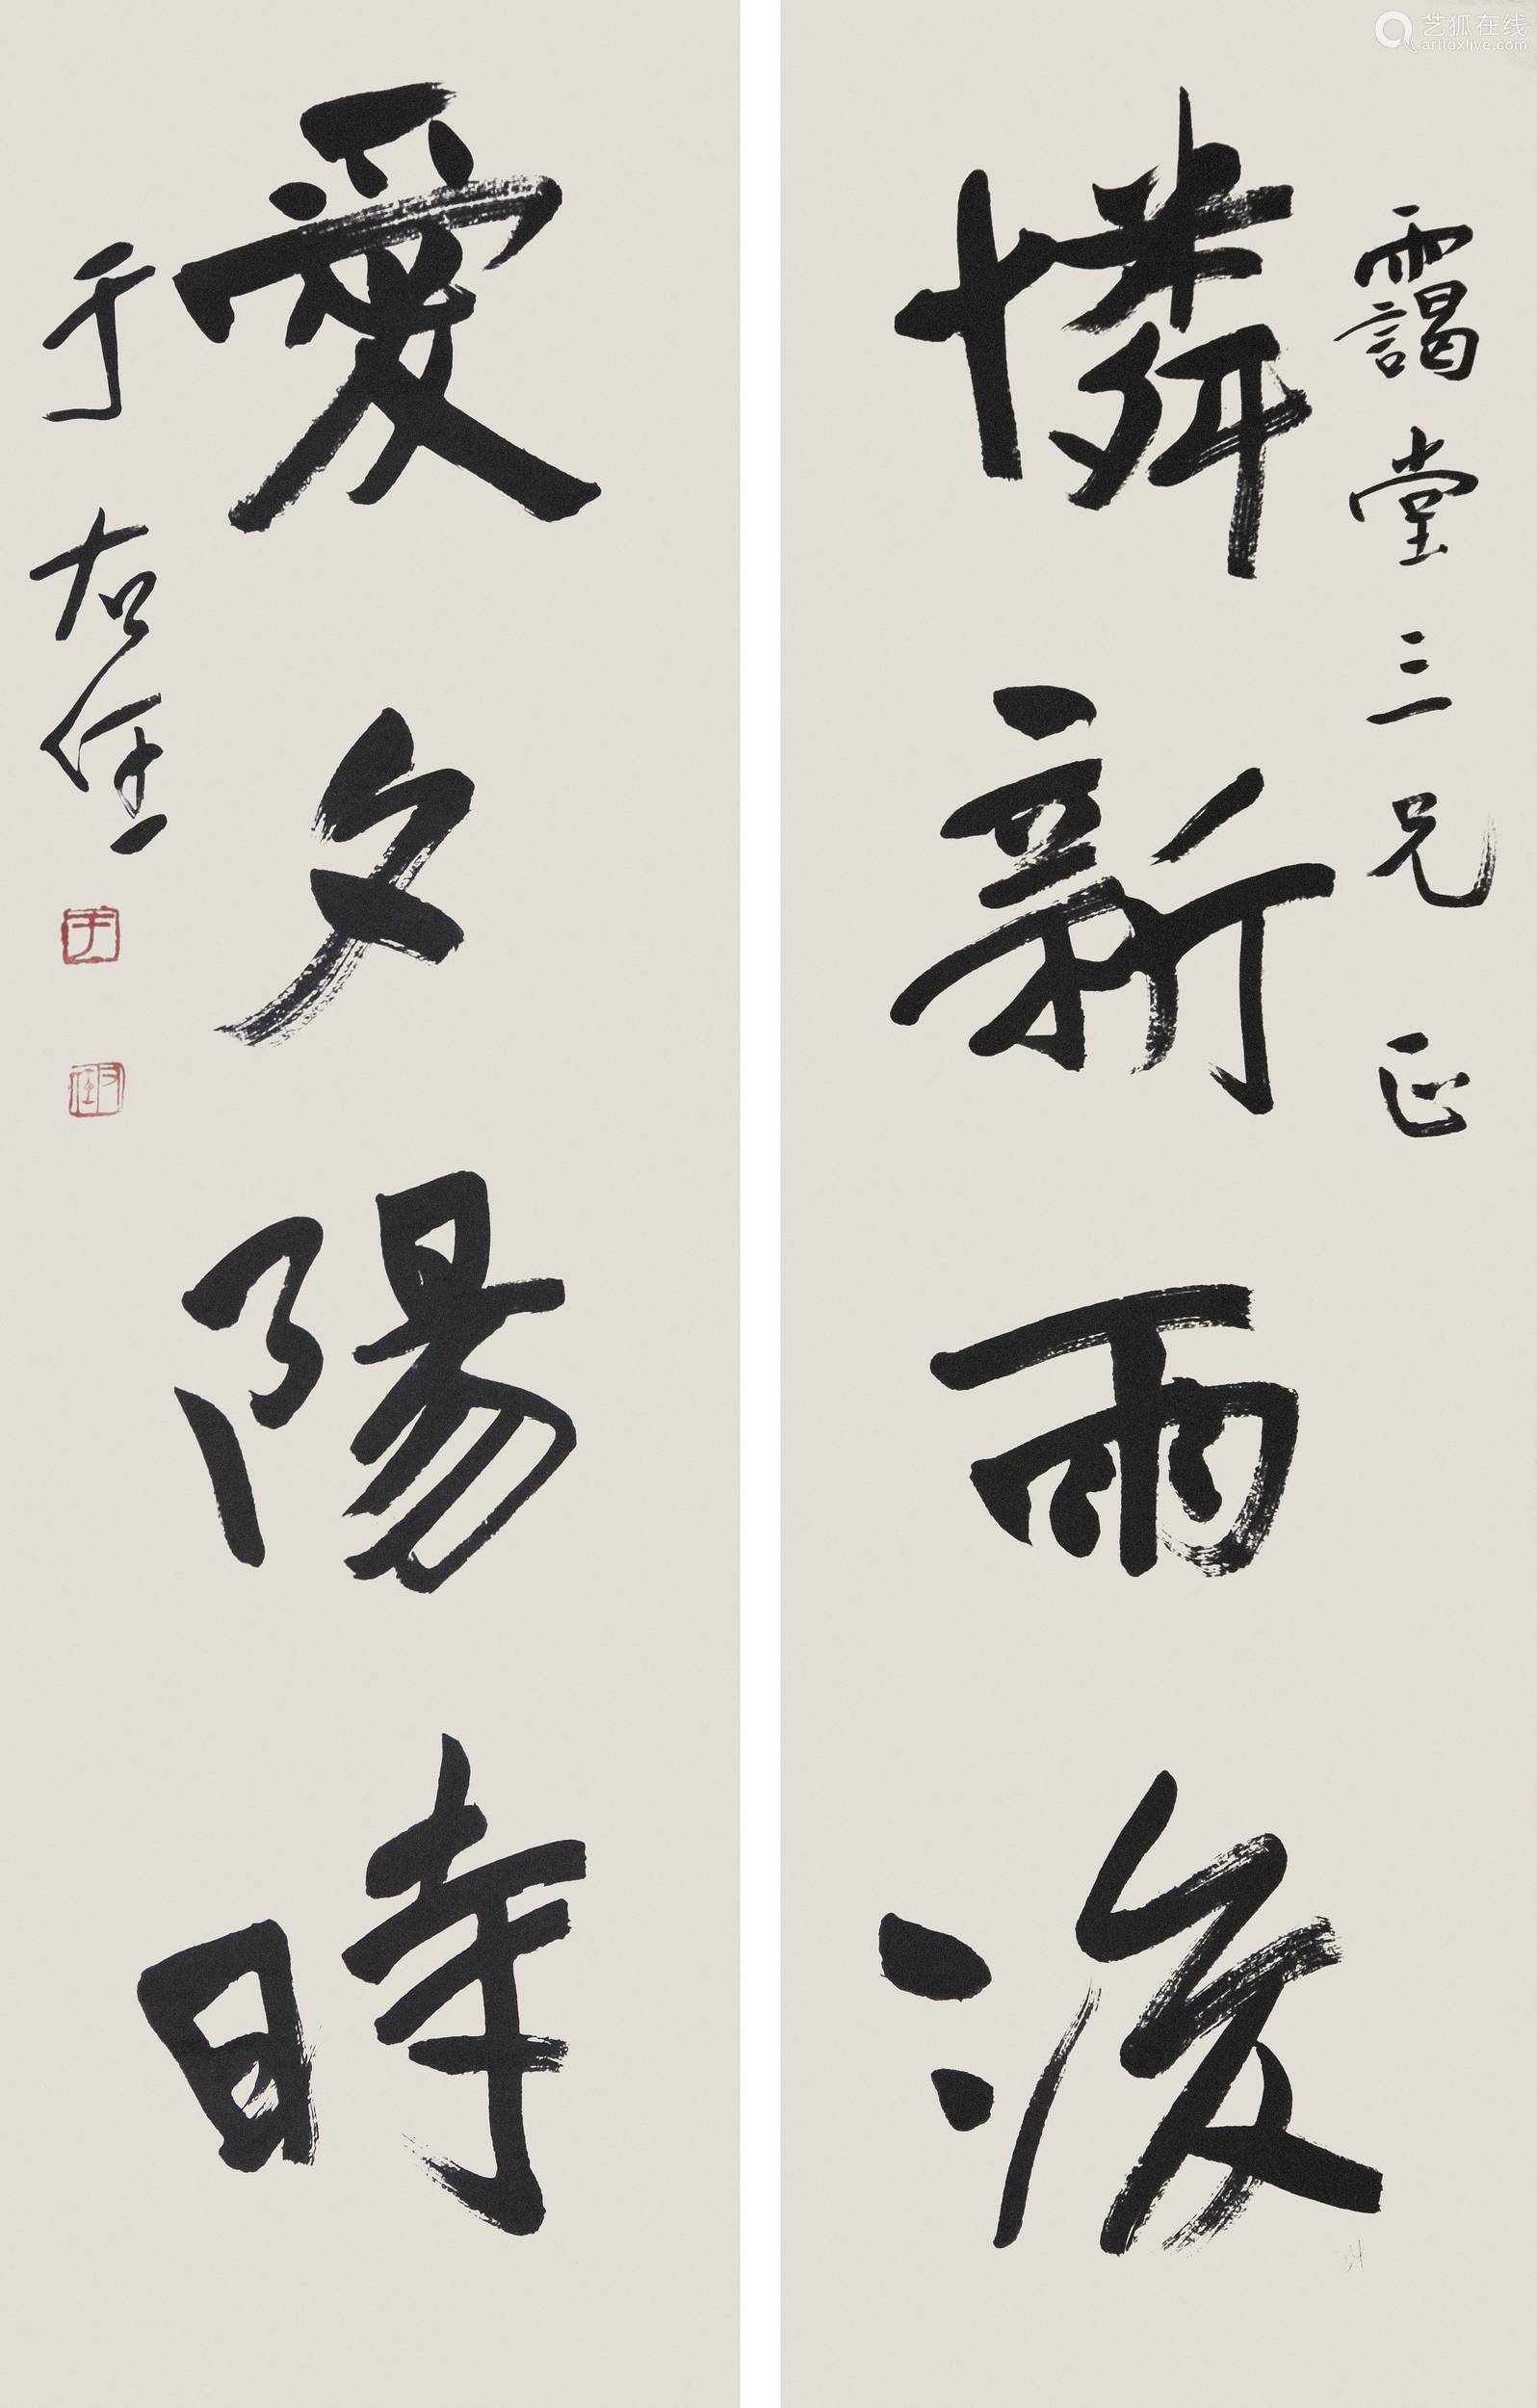 艺狐在线
artfoxlive.com
靄堂三兄正
憐新雨後
愛夕陽時
于右任
于
右任